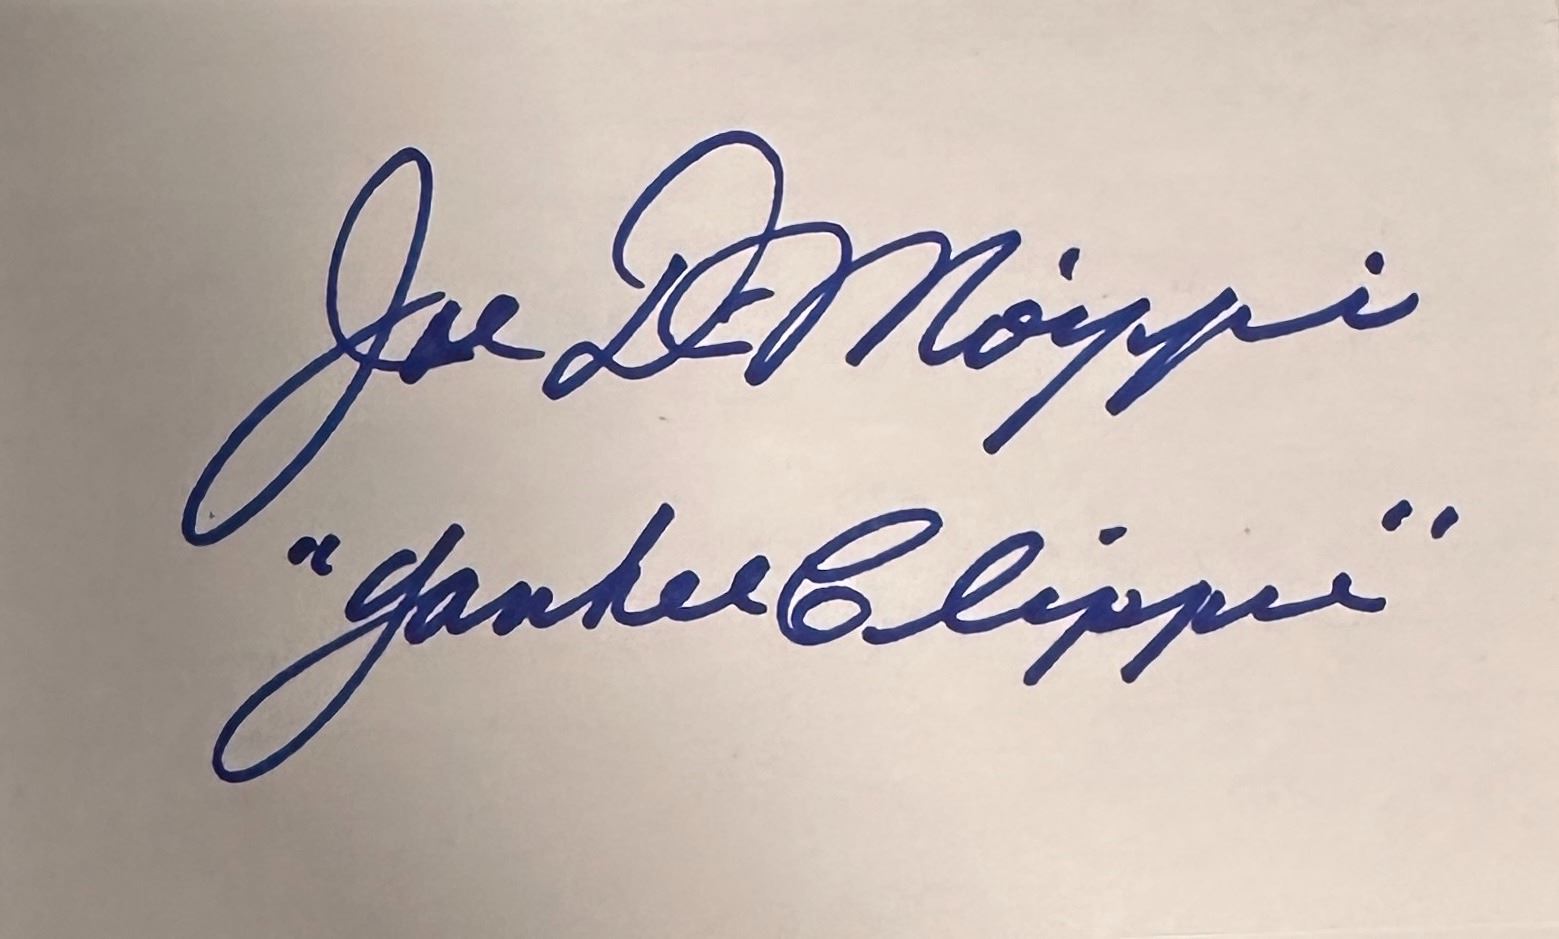 Joe DiMaggio
"Yankee Clipper"